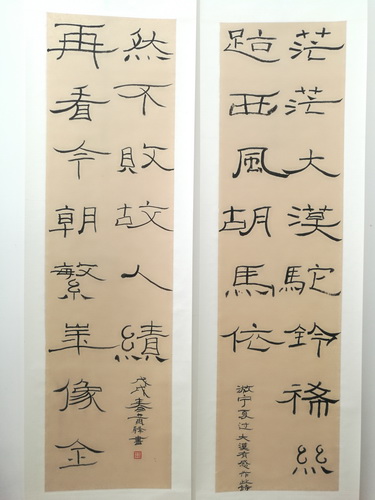 茫茫大漠駝鈴稀絲
路西風胡馬依
游宁夏过大漠有感作此詩
再看今朝繁華像全
然不敗故人績
戊戌春徐書